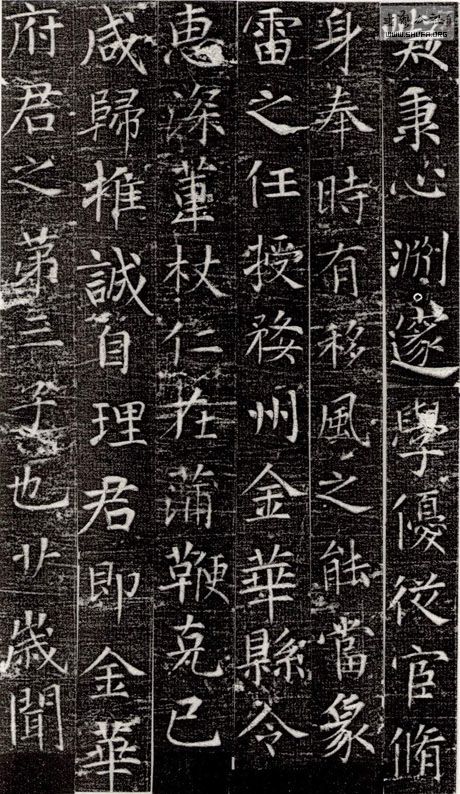 秉心渕邃學優從宦脩
身奉時有移風之能當象
雷之任授婺州金華縣令
惠深董杖仁在蒲鞭克已
咸歸推誠自理君即金華
府君之苐三子也廿歲聞
WWW.SHUFA.ORG